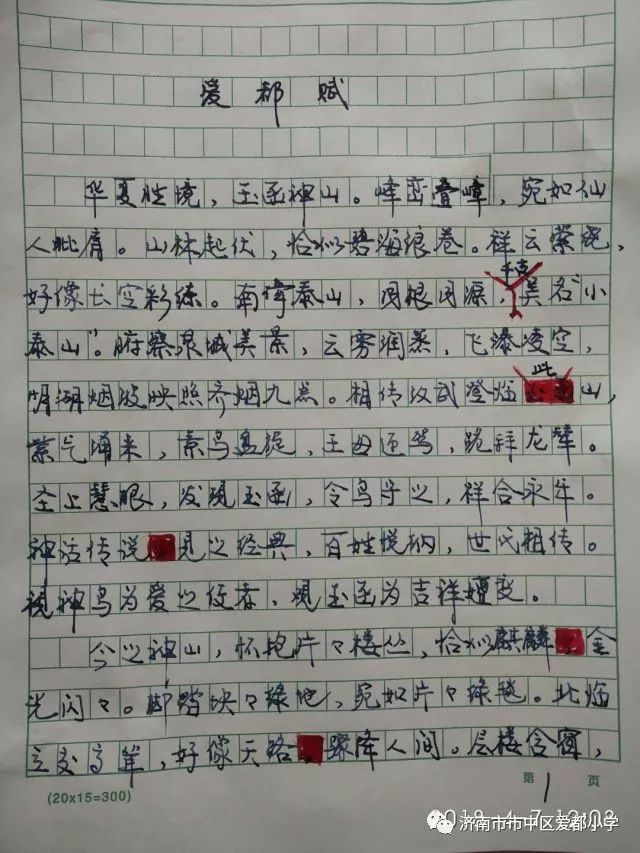 爱都赋
华夏胜境，玉函神山。峰峦叠嶂，宛如仙
人比肩。山林起伏，恰似碧海浪卷。祥云萦绕，
好像长空彩练。南倚泰山，同根同源，
千古
美名“小
泰山”。俯察泉城美景，云雾润蒸，飞瀑凌空，
明湖烟波映照齐烟九点。相传汉武登临
此
山，
紫气涌来，鸟盘旋，王母还驾，跪拜龙辇。
圣上慧眼，发现玉函，令鸟守之，祥合永年。
神话传说见之经典，百姓悦纳，世代相传。
视神鸟为爱之使者，观玉函为吉祥
今之神山，怀抱片々楼丛，恰似麒麟金
光闪々。脚踏块々绿地，宛如片々绿毯。北临
立交高架，好像天路骤降人间。层楼
第1页
(20x15=300)
2019 4 7 12:03
济南市市中区爱都小学